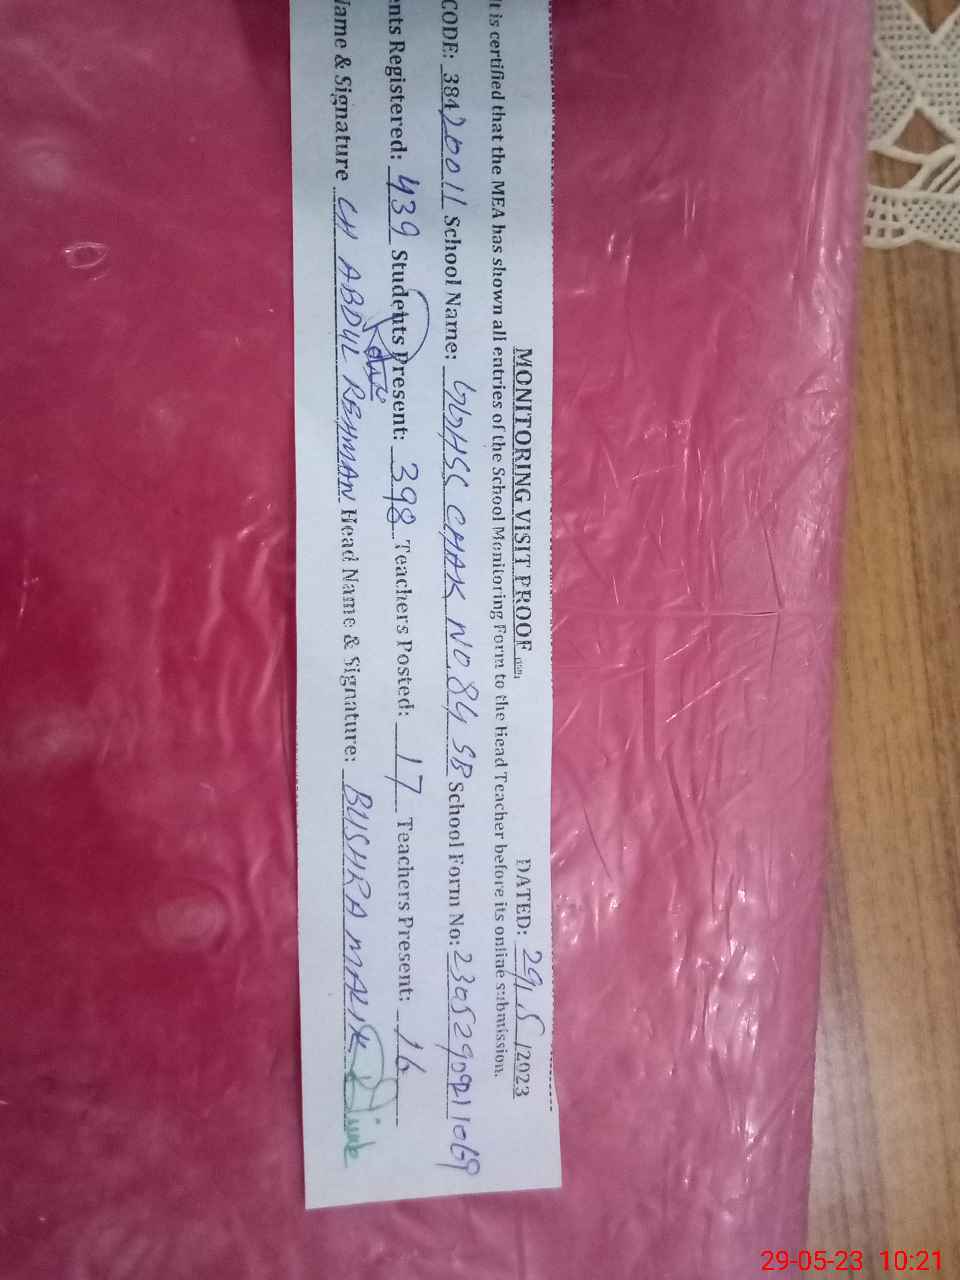 MONITORING VISIT PROOF DATED: 29/5/2023
It is certified that the MEA has shown all entries of the School Monitoring Form to the Head Teacher before its online submission.
CODE: 38420011 School Name: GGHSC CHAK NO.84 SB School Form No: 2305290911069
ents Registered: 439 Students Present: 398 Teachers Posted: 17 Teachers Present: 16
Name & Signature CH ABDUL REHMAN Head Name & Signature: BUSHRA MALIK
29-05-23 10:21